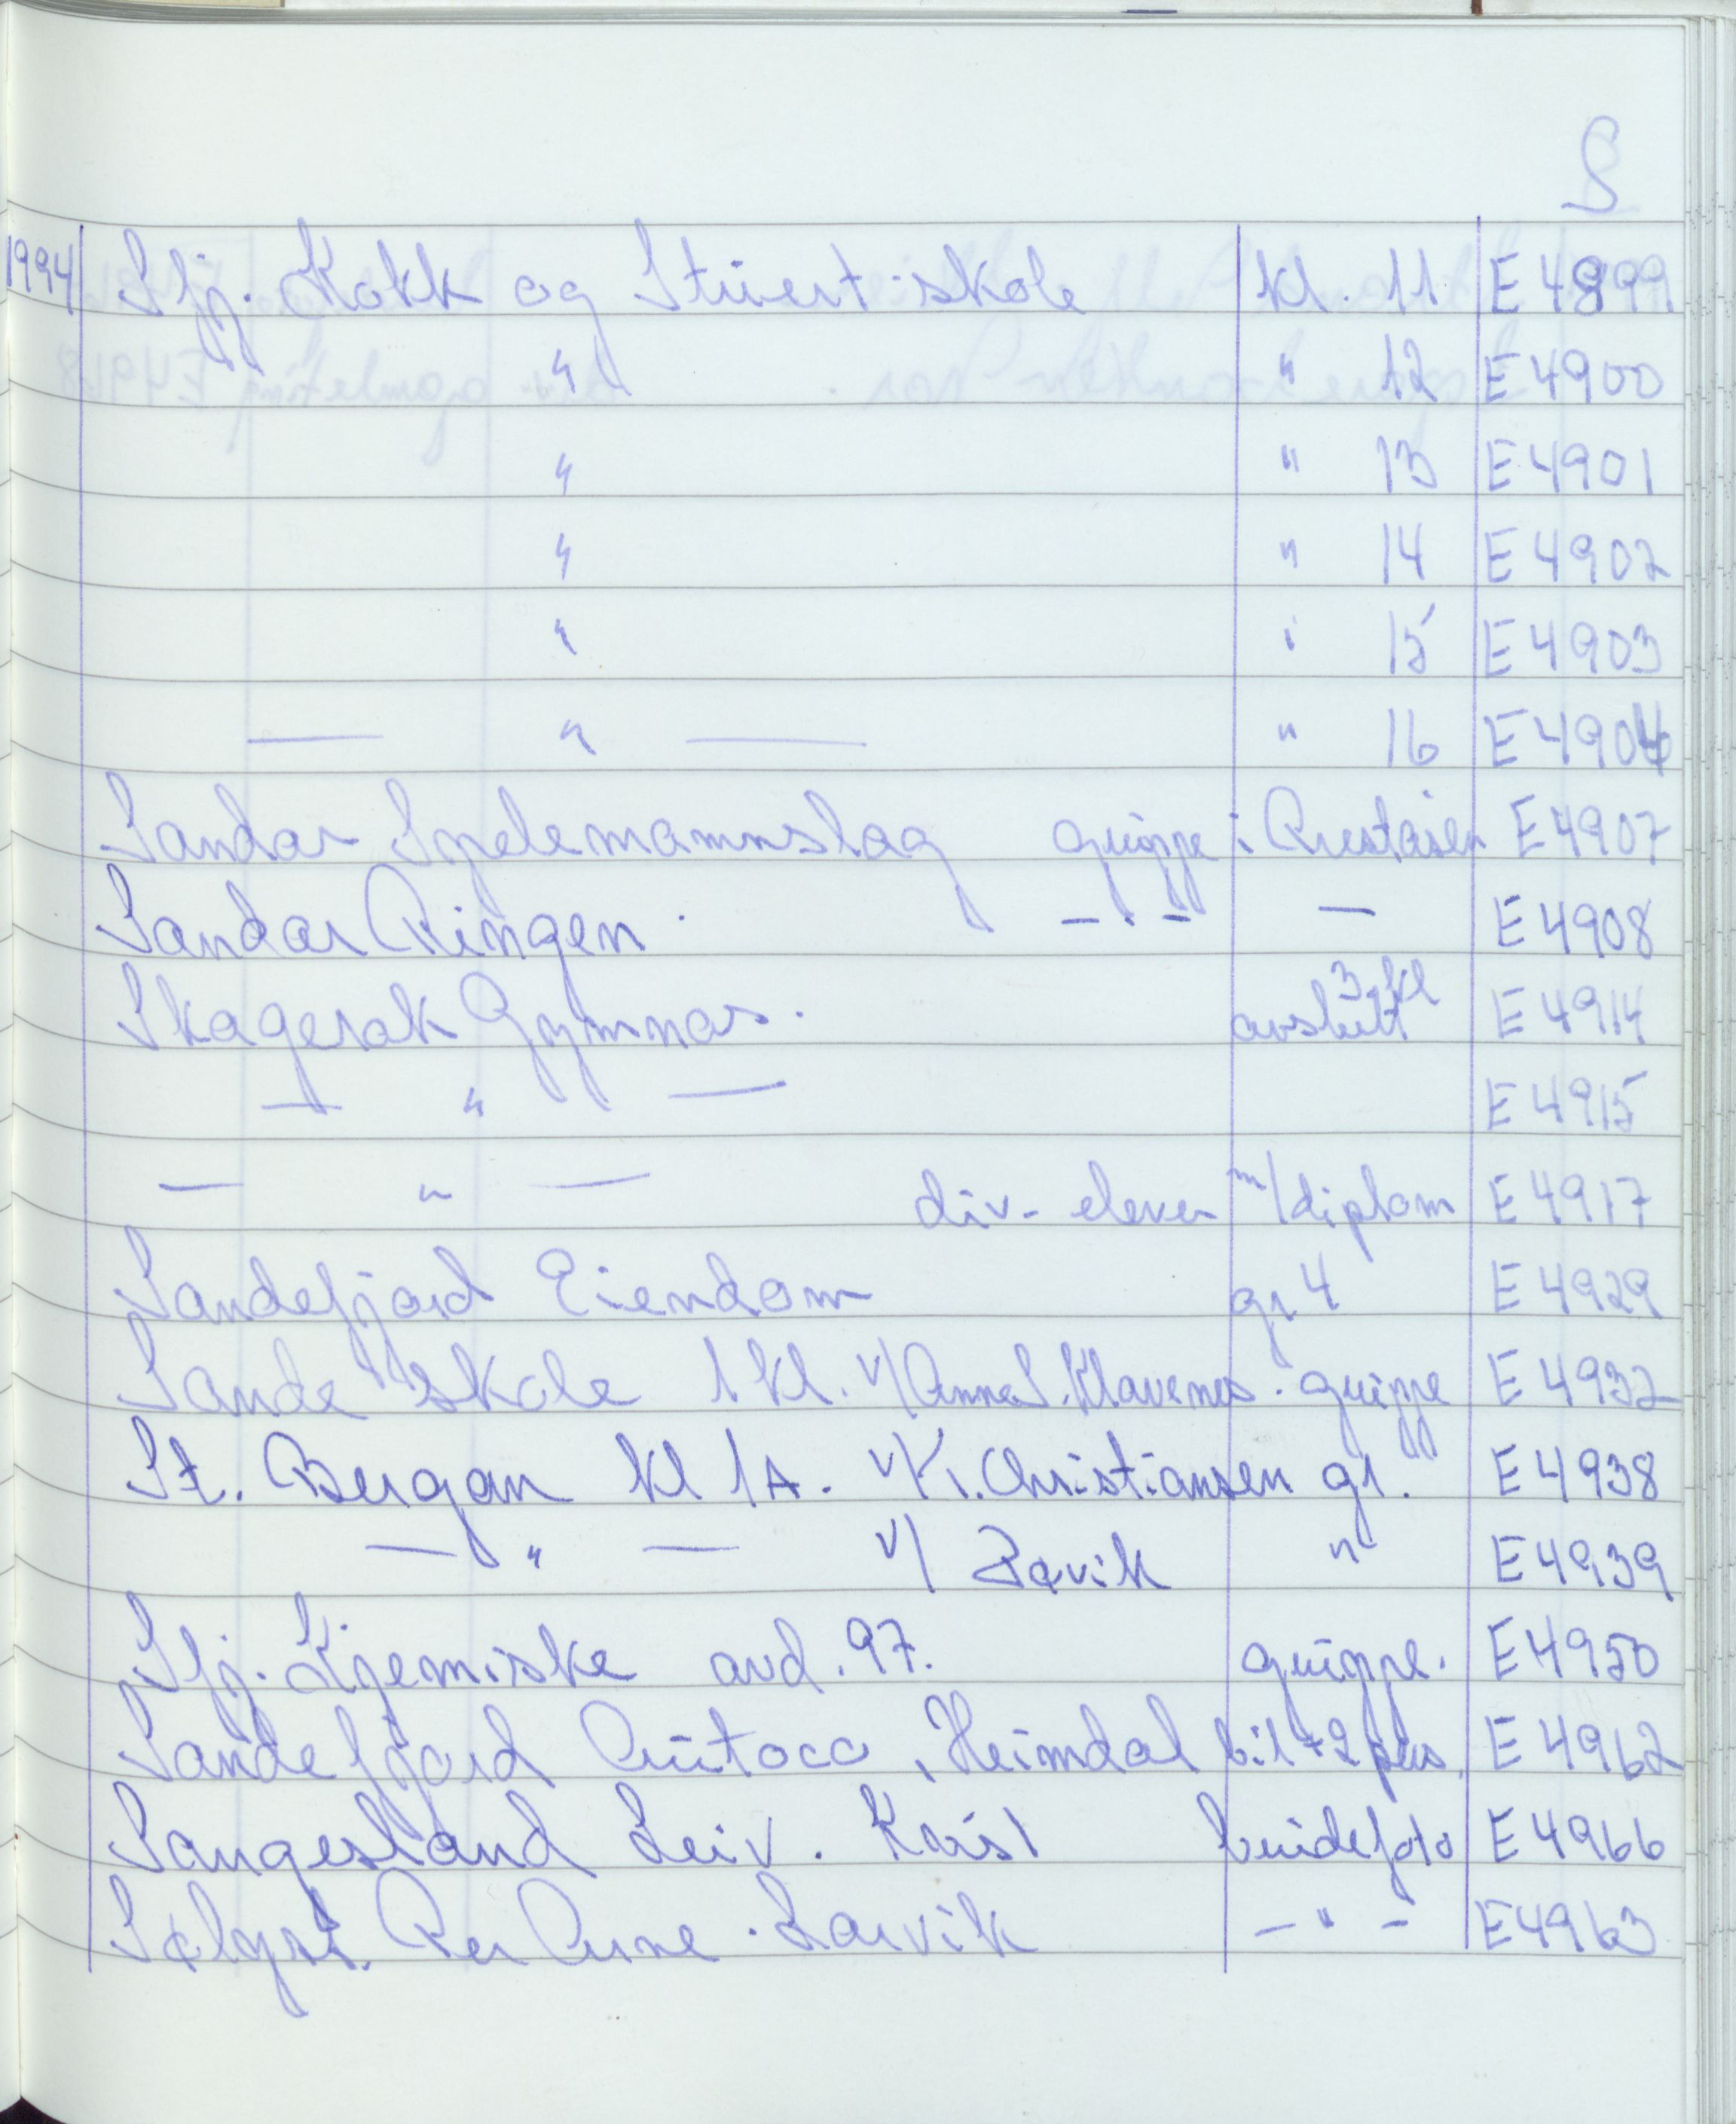 S
1994 Sfj. Kokk og Stuert-skole kl. 11 E 4899
" " 12 E 4900
" " 13 E 4901
" " 14 E 4902
" " 15 E 4903
— " — " 16 E 4904
Sandar Spelemannslag gruppe i Preståsen E 4907
Sandar Ringen. - . - — E 4908
Skagerak Gymnas. 3 kl avslutt E 4914
— " — E 4915
— " — div. elever m/diplom E 4917
Sandefjord Eiendom gr 4 E 4929
Sande skole 1 kl. v/Anne S. Klavenes. gruppe E 4932
St. Bergan kl 1A. v/K. Christiansen gr. E 4938
— " — v/ " E 4939
Sfj. Kjemiske avd. 97. gruppe. E 4950
Sandefjord Autocc, Heimdal bil + 2 pers. E 4962
Saugestand Leiv. Kris1 brudefoto E 4966
Per Arne. Larvik - " - E4963